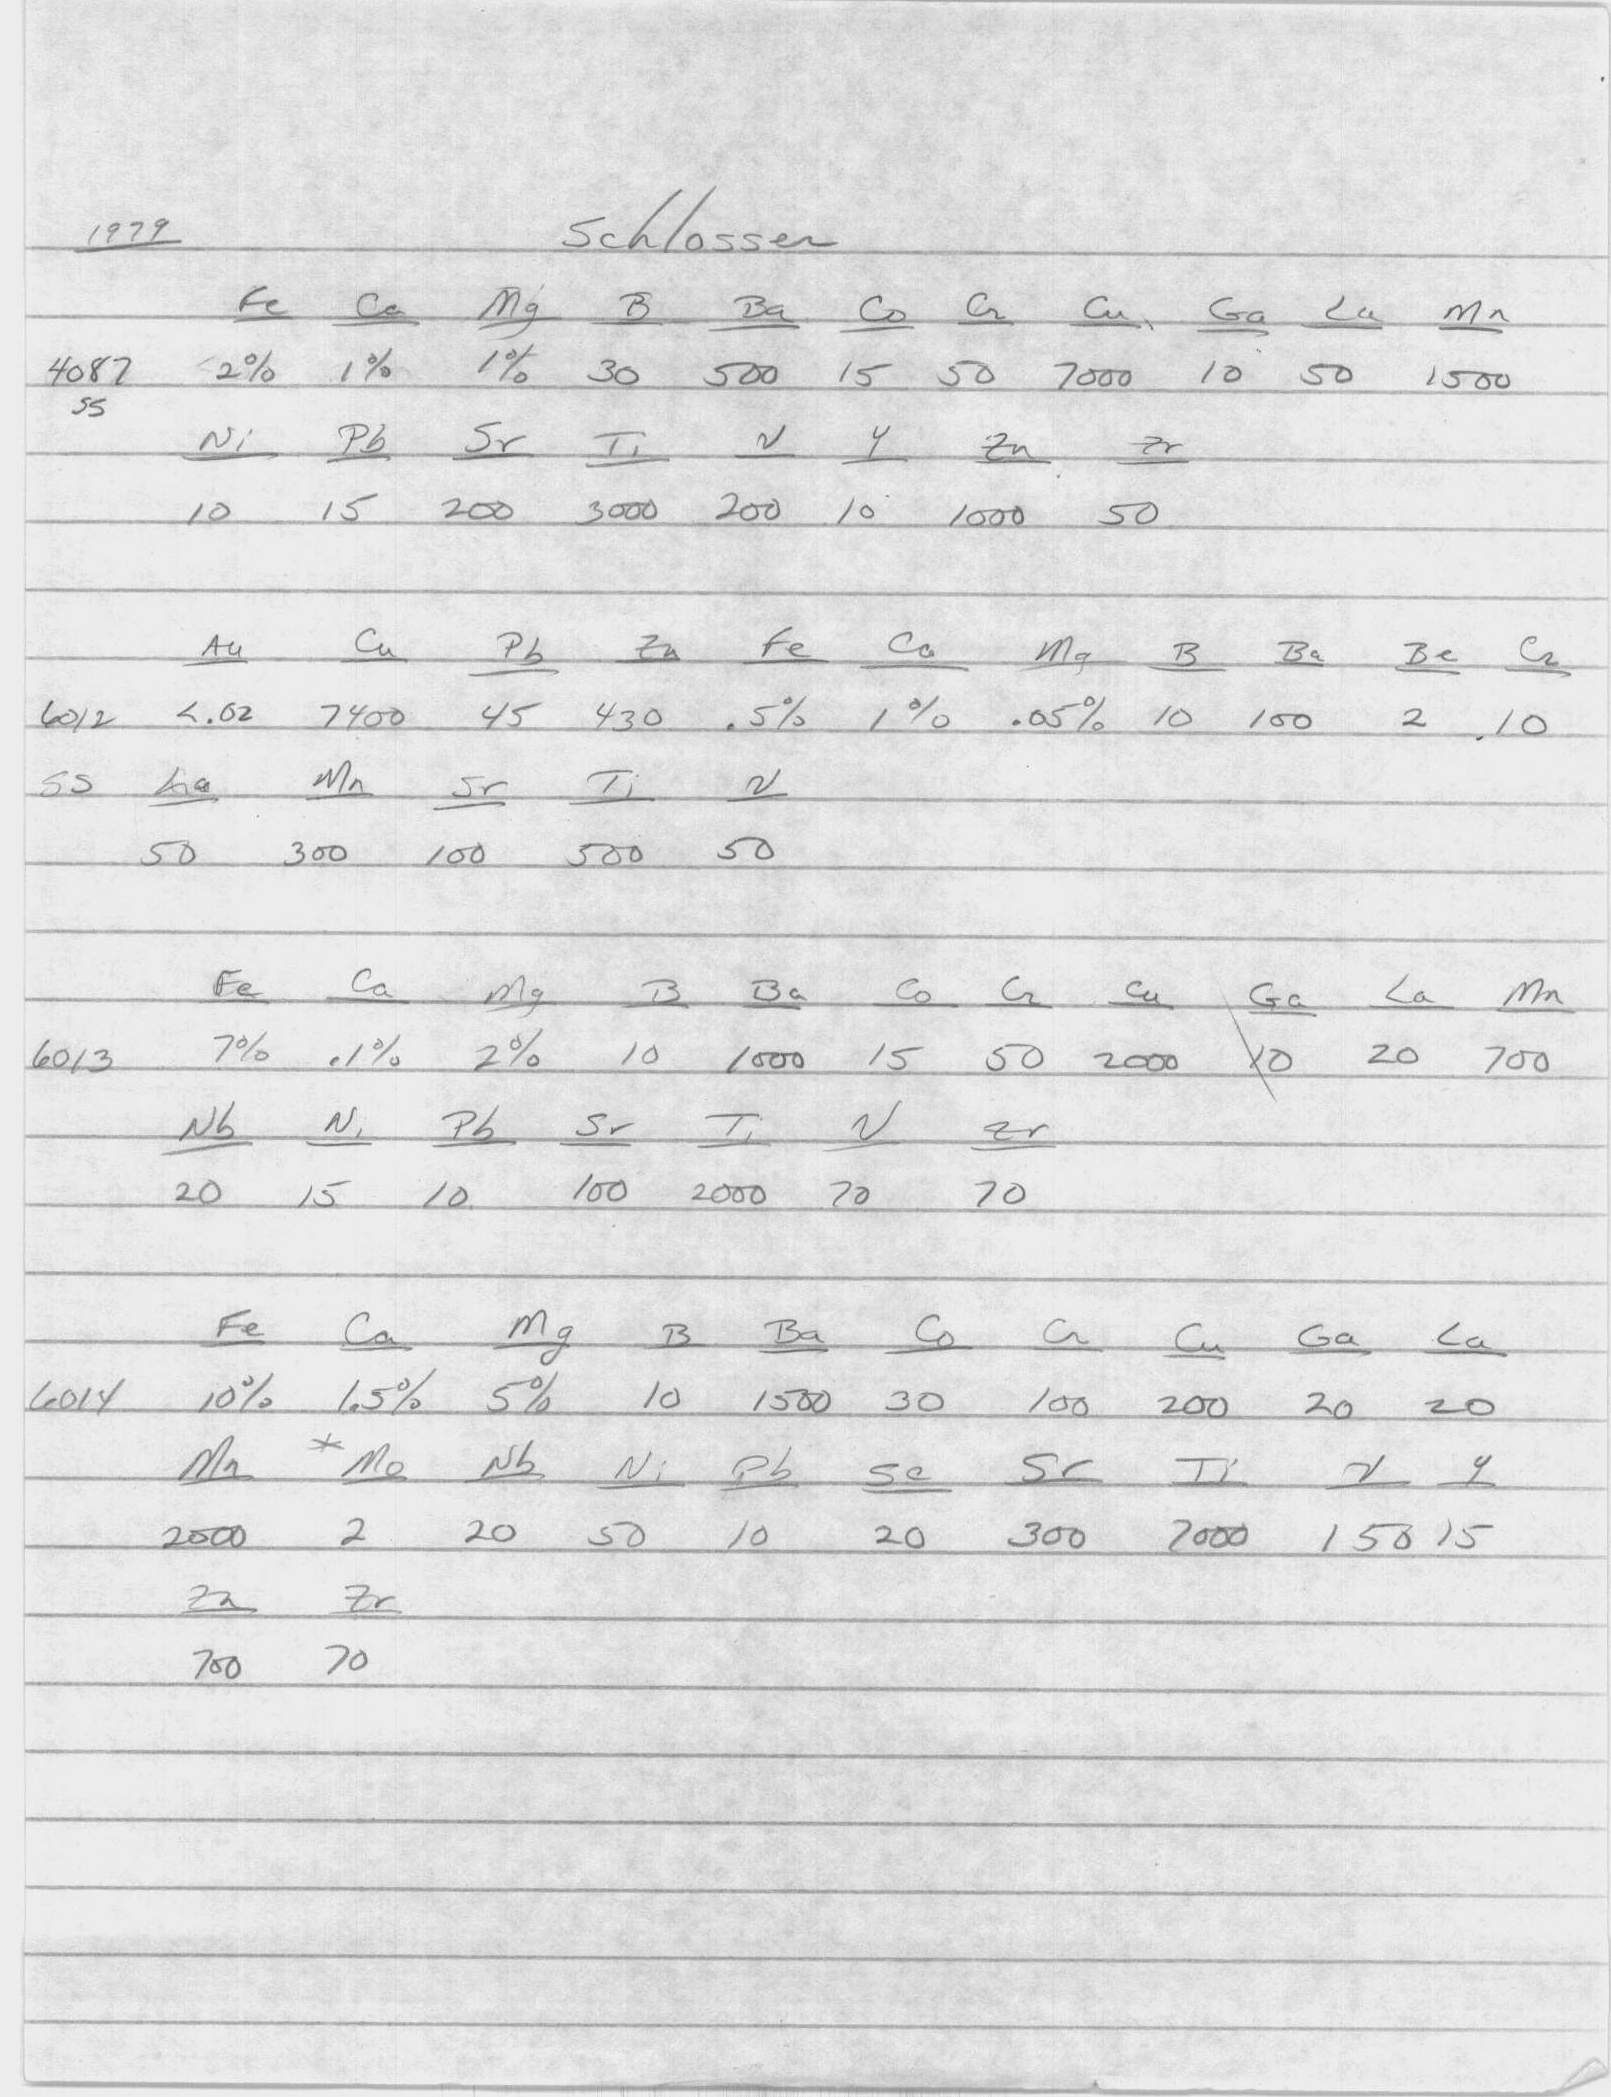 1979 Schlosser
Fe Ca Mg B Ba Co Cr Cu Ga La Mn
4087 2% 1% 1% 30 500 15 50 7000 10 50 1500
SS
Ni Pb Sr Ti V Y Zn Zr
10 15 200 3000 200 10 1000 50
Au Cu Pb Zn Fe Ca Mg B Ba Be Cr
6012 <.02 7400 45 430 .5% 1% .05% 10 100 2 10
SS La Mn Sr Ti V
50 300 100 500 50
Fe Ca Mg B Ba Co Cr Cu Ga La Mn
6013 7% .1% 2% 10 1000 15 50 2000 10 20 700
Nb Ni Pb Sr Ti V Zr
20 15 10 100 2000 70 70
Fe Ca Mg B Ba Co Cr Cu Ga La
6014 10% 1.5% 5% 10 1500 30 100 200 20 20
Mn *Mo Nb Ni Pb Sc Sr Ti V Y
2000 2 20 50 10 20 300 7000 150 15
Zn Zr
700 70